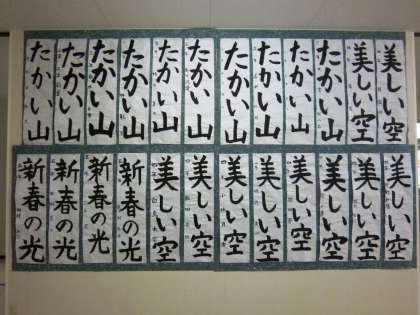 美しい空
美しい空
たかい山
たかい山
たかい山
たかい山
たかい山
たかい山
たかい山
たかい山
たかい山
たかい山
美しい空
美しい空
美しい空
美しい空
美しい空
美しい空
美しい空
美しい空
新春の光
新春の光
新春の光
新春の光